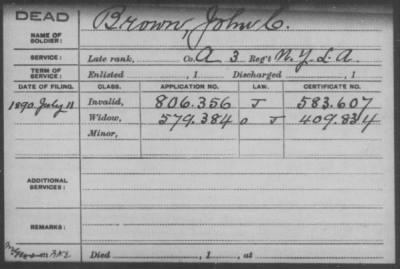 DEAD
Brown, John C.
NAME OF SOLDIER:
SERVICE: Late rank, Co. A 3 Reg't N.Y.L.A.
TERM OF SERVICE: Enlisted , 1 Discharged , 1
DATE OF FILING. CLASS. APPLICATION NO. LAW. CERTIFICATE NO.
1890 July 11 Invalid, 806.356 J 583.607
Widow, 579.384 o J 409.834
Minor,
ADDITIONAL SERVICES:
REMARKS:
Died , 1 , at